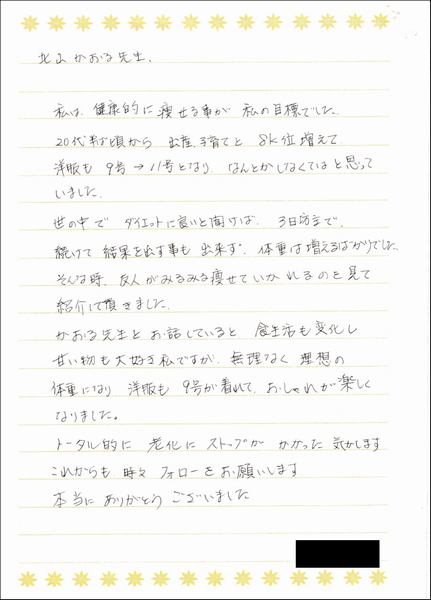 北山かおる先生、
私は、健康的に痩せる事が 私の目標でした。
20代半ば頃から 出産、子育てと 8k位増えて
洋服も 9号→11号となり、なんとかしなくてはと思って
いました。
世の中で ダイエットに良いと聞けば、3日坊主で、
続けて 結果を出す事も 出来ず、体重は増えるばかりでした。
そんな時、友人がみるみる痩せていかれるのを見て
紹介して頂きました。
かおる先生とお話していると 食生活も変化し
甘い物も大好き私ですが、無理なく 理想の
体重になり 洋服も 9号が着れて、おしゃれが楽しく
なりました。
トータル的に 老化に ストップが かかった 気がします
これからも 時々 フォローをお願いします
本当に ありがとう ございました